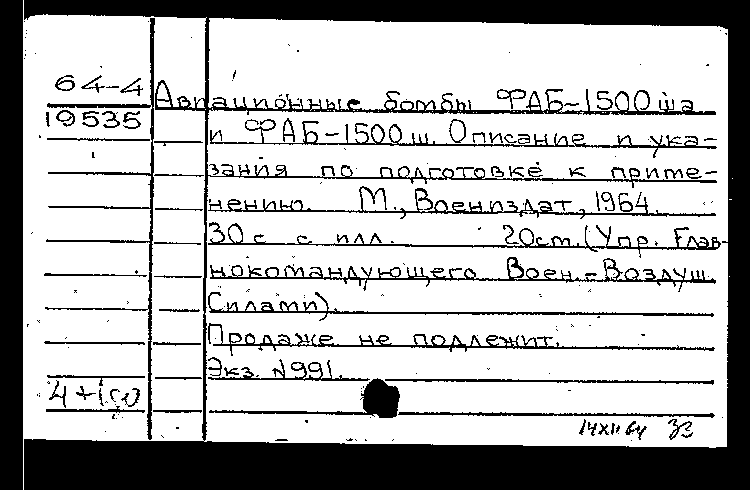 64-4
19535
Авиационные бомбы ФАБ-1500ша
и ФАБ-1500ш. Описание и ука-
зания по подготовке к приме-
нению. М., Воениздат, 1964.
30с с илл. 20см. (Упр. Глав-
нокомандующего Воен.-Воздуш.
Силами).
Продаже не подлежит.
Экз. №991.
14XII64